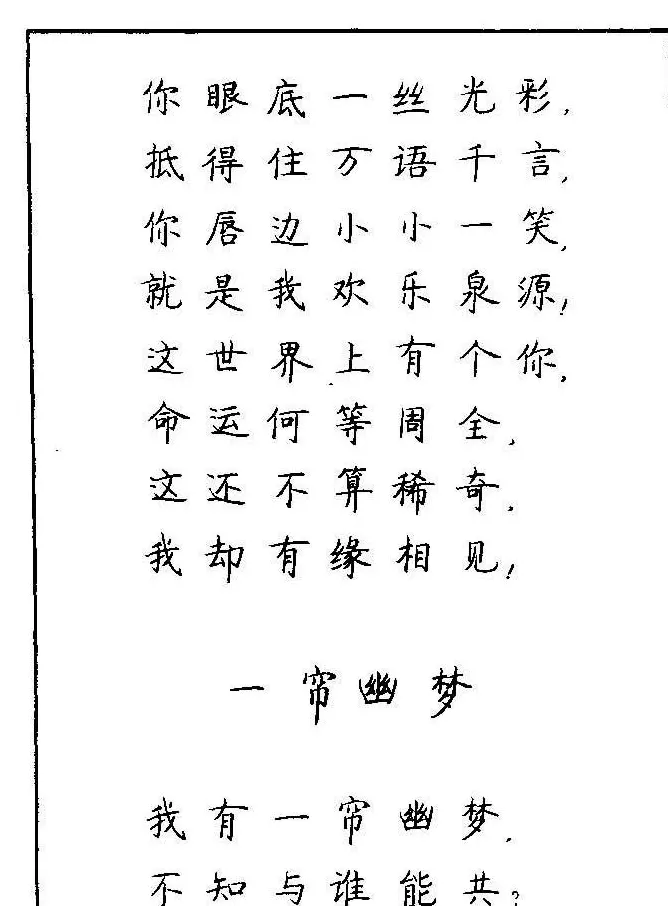 你眼底一丝光彩,
抵得住万语千言,
你唇边小小一笑,
就是我欢乐泉源!
这世界上有个你,
命运何等周全,
这还不算稀奇,
我却有缘相见!
一帘幽梦
我有一帘幽梦,
不知与谁能共?